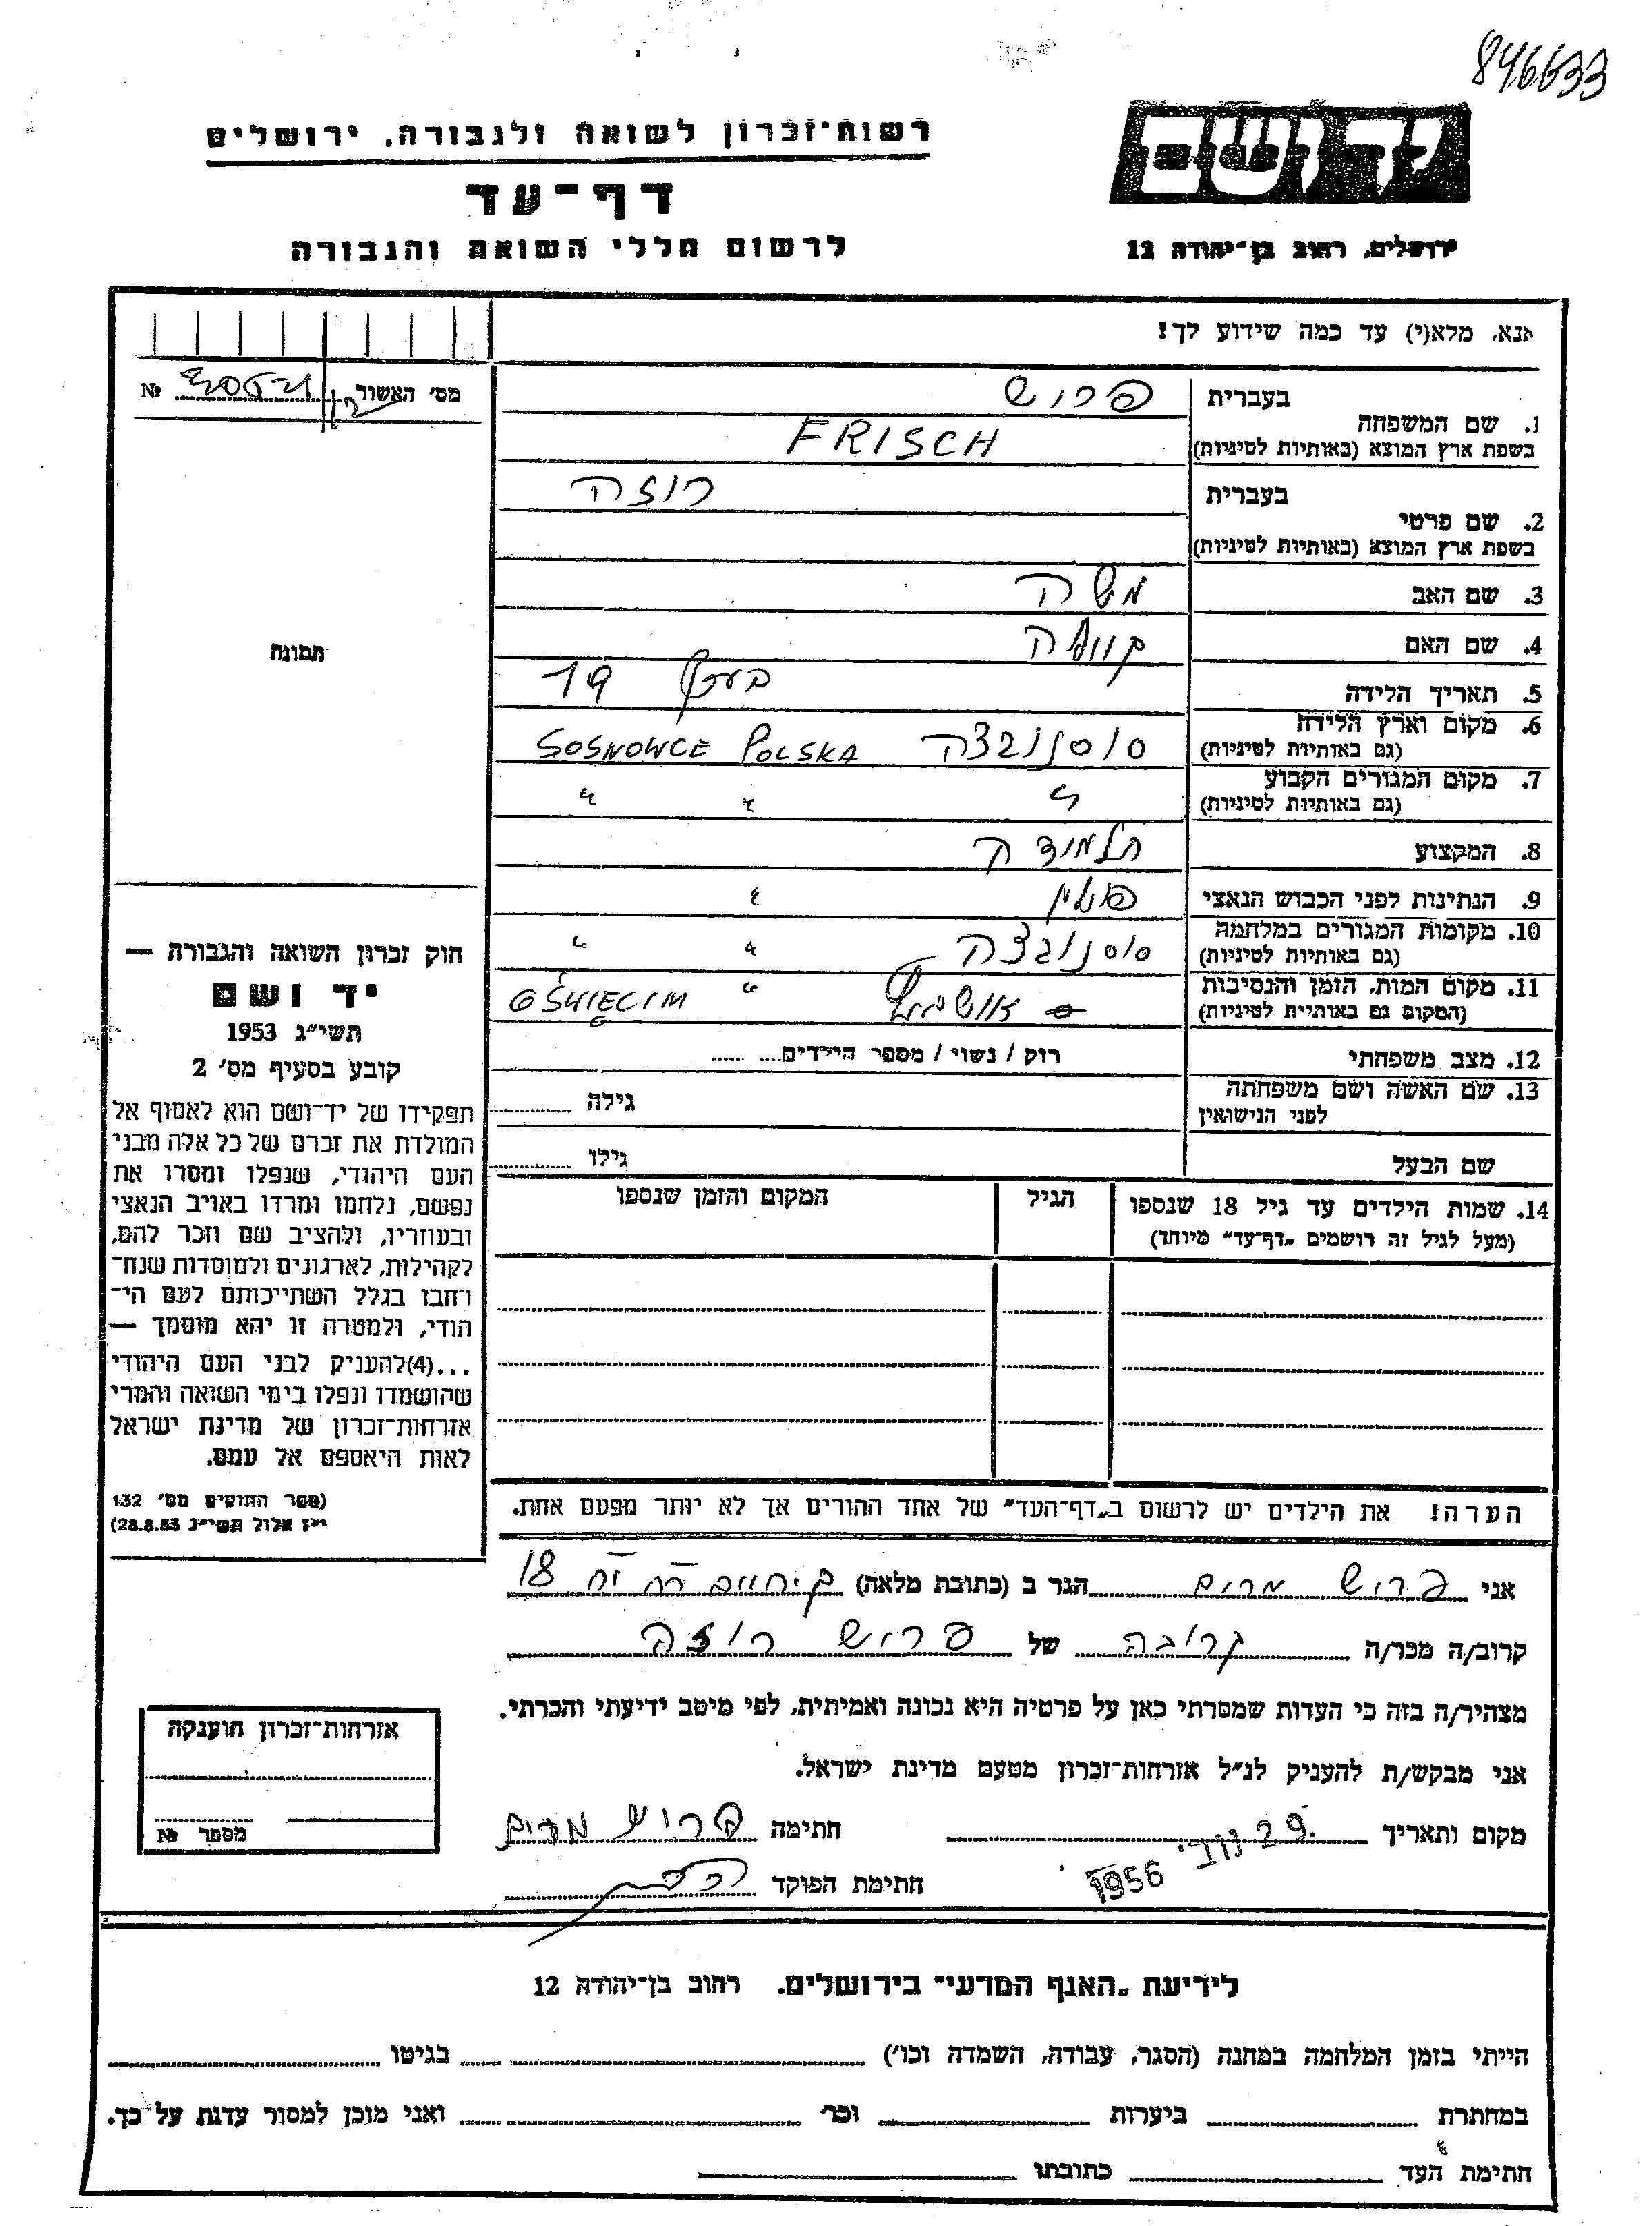 846633
רשות־זכרון לשואה ולגבורה, ירושלים
דף־עד
לרשום חללי השואה והגבורה
יד ושם
ירושלים, רחוב בן־יהודה 12
אנא, מלא(י) עד כמה שידוע לך!
מס' האשור № 
בעברית פרוש
1. שם המשפחה
בשפת ארץ המוצא (באותיות לטיניות) FRISCH
בעברית רוזה
2. שם פרטי
בשפת ארץ המוצא (באותיות לטיניות)
3. שם האב משה
4. שם האם
5. תאריך הלידה 19
6. מקום וארץ הלידה סוסנובצה SOSNOWCE POLSKA
(גם באותיות לטיניות)
7. מקום המגורים הקבוע " " "
(גם באותיות לטיניות)
8. המקצוע תלמידה
9. הנתינות לפני הכבוש הנאצי פולין "
10. מקומות המגורים במלחמה סוסנובצה " "
(גם באותיות לטיניות)
11. מקום המות, הזמן והנסיבות אושביץ " OŚWIĘCIM
(המקום גם באותיות לטיניות)
12. מצב משפחתי רוק / נשוי / מספר הילדים
13. שם האשה ושם משפחתה גילה
לפני הנישואין
שם הבעל גילו
14. שמות הילדים עד גיל 18 שנספו הגיל המקום והזמן שנספו
(מעל לגיל זה רושמים „דף־עד" מיוחד)
הערה! את הילדים יש לרשום ב„דף־העד" של אחד ההורים אך לא יותר מפעם אחת.
תמונה
חוק זכרון השואה והגבורה —
יד ושם
תשי"ג 1953
קובע בסעיף מס' 2
תפקידו של יד־ושם הוא לאסוף אל
המולדת את זכרם של כל אלה מבני
העם היהודי, שנפלו ומסרו את
נפשם, נלחמו ומרדו באויב הנאצי
ובעוזריו, ולהציב שם וזכר להם,
לקהילות, לארגונים ולמוסדות שנח־
רחבו בגלל השתייכותם לעם הי־
הודי, ולמטרה זו יהא מוסמך —
...(4) להעניק לבני העם היהודי
שהושמדו ונפלו בימי השואה והמרי
אזרחות־זכרון של מדינת ישראל
לאות היאספם אל עמם.
(ספר החוקים מס' 132
י"ז אלול תשי"ג 28.8.53)
אני פרוש מרים הגר ב (כתובת מלאה) ק. חיים 18
קרוב/ה מכר/ה קרובה של פרוש רוזה
מצהיר/ה בזה כי העדות שמסרתי כאן על פרטיה היא נכונה ואמיתית, לפי מיטב ידיעתי והכרתי.
אני מבקש/ת להעניק לנ"ל אזרחות־זכרון מטעם מדינת ישראל.
מקום ותאריך 29 נוב' 1956 חתימה פרוש מרים
חתימת הפוקד
אזרחות־זכרון הוענקה
מספר №
לידיעת „האגף המדעי" בירושלים. רחוב בן־יהודה 12
הייתי בזמן המלחמה במחנה (הסגר, עבודה, השמדה וכו') בגיטו
במחתרת ביערות וכו' ואני מוכן למסור עדות על כך.
חתימת העד כתובתו